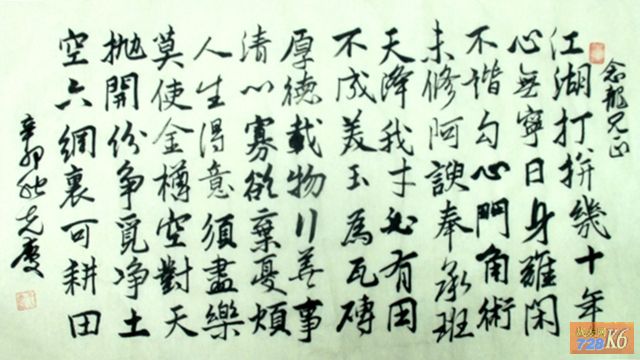 念龍兄正
江湖打拚幾十年
心無寧日身難閑
不諧勾心鬥角術
未修阿諛奉承班
天降我才必有用
不成美玉為瓦磚
厚德載物行善事
清心寡欲棄憂煩
人生得意須盡樂
莫使金樽空對天
拋開份争覓净土
空六網裏可耕田
辛卯
战友网
728
K6